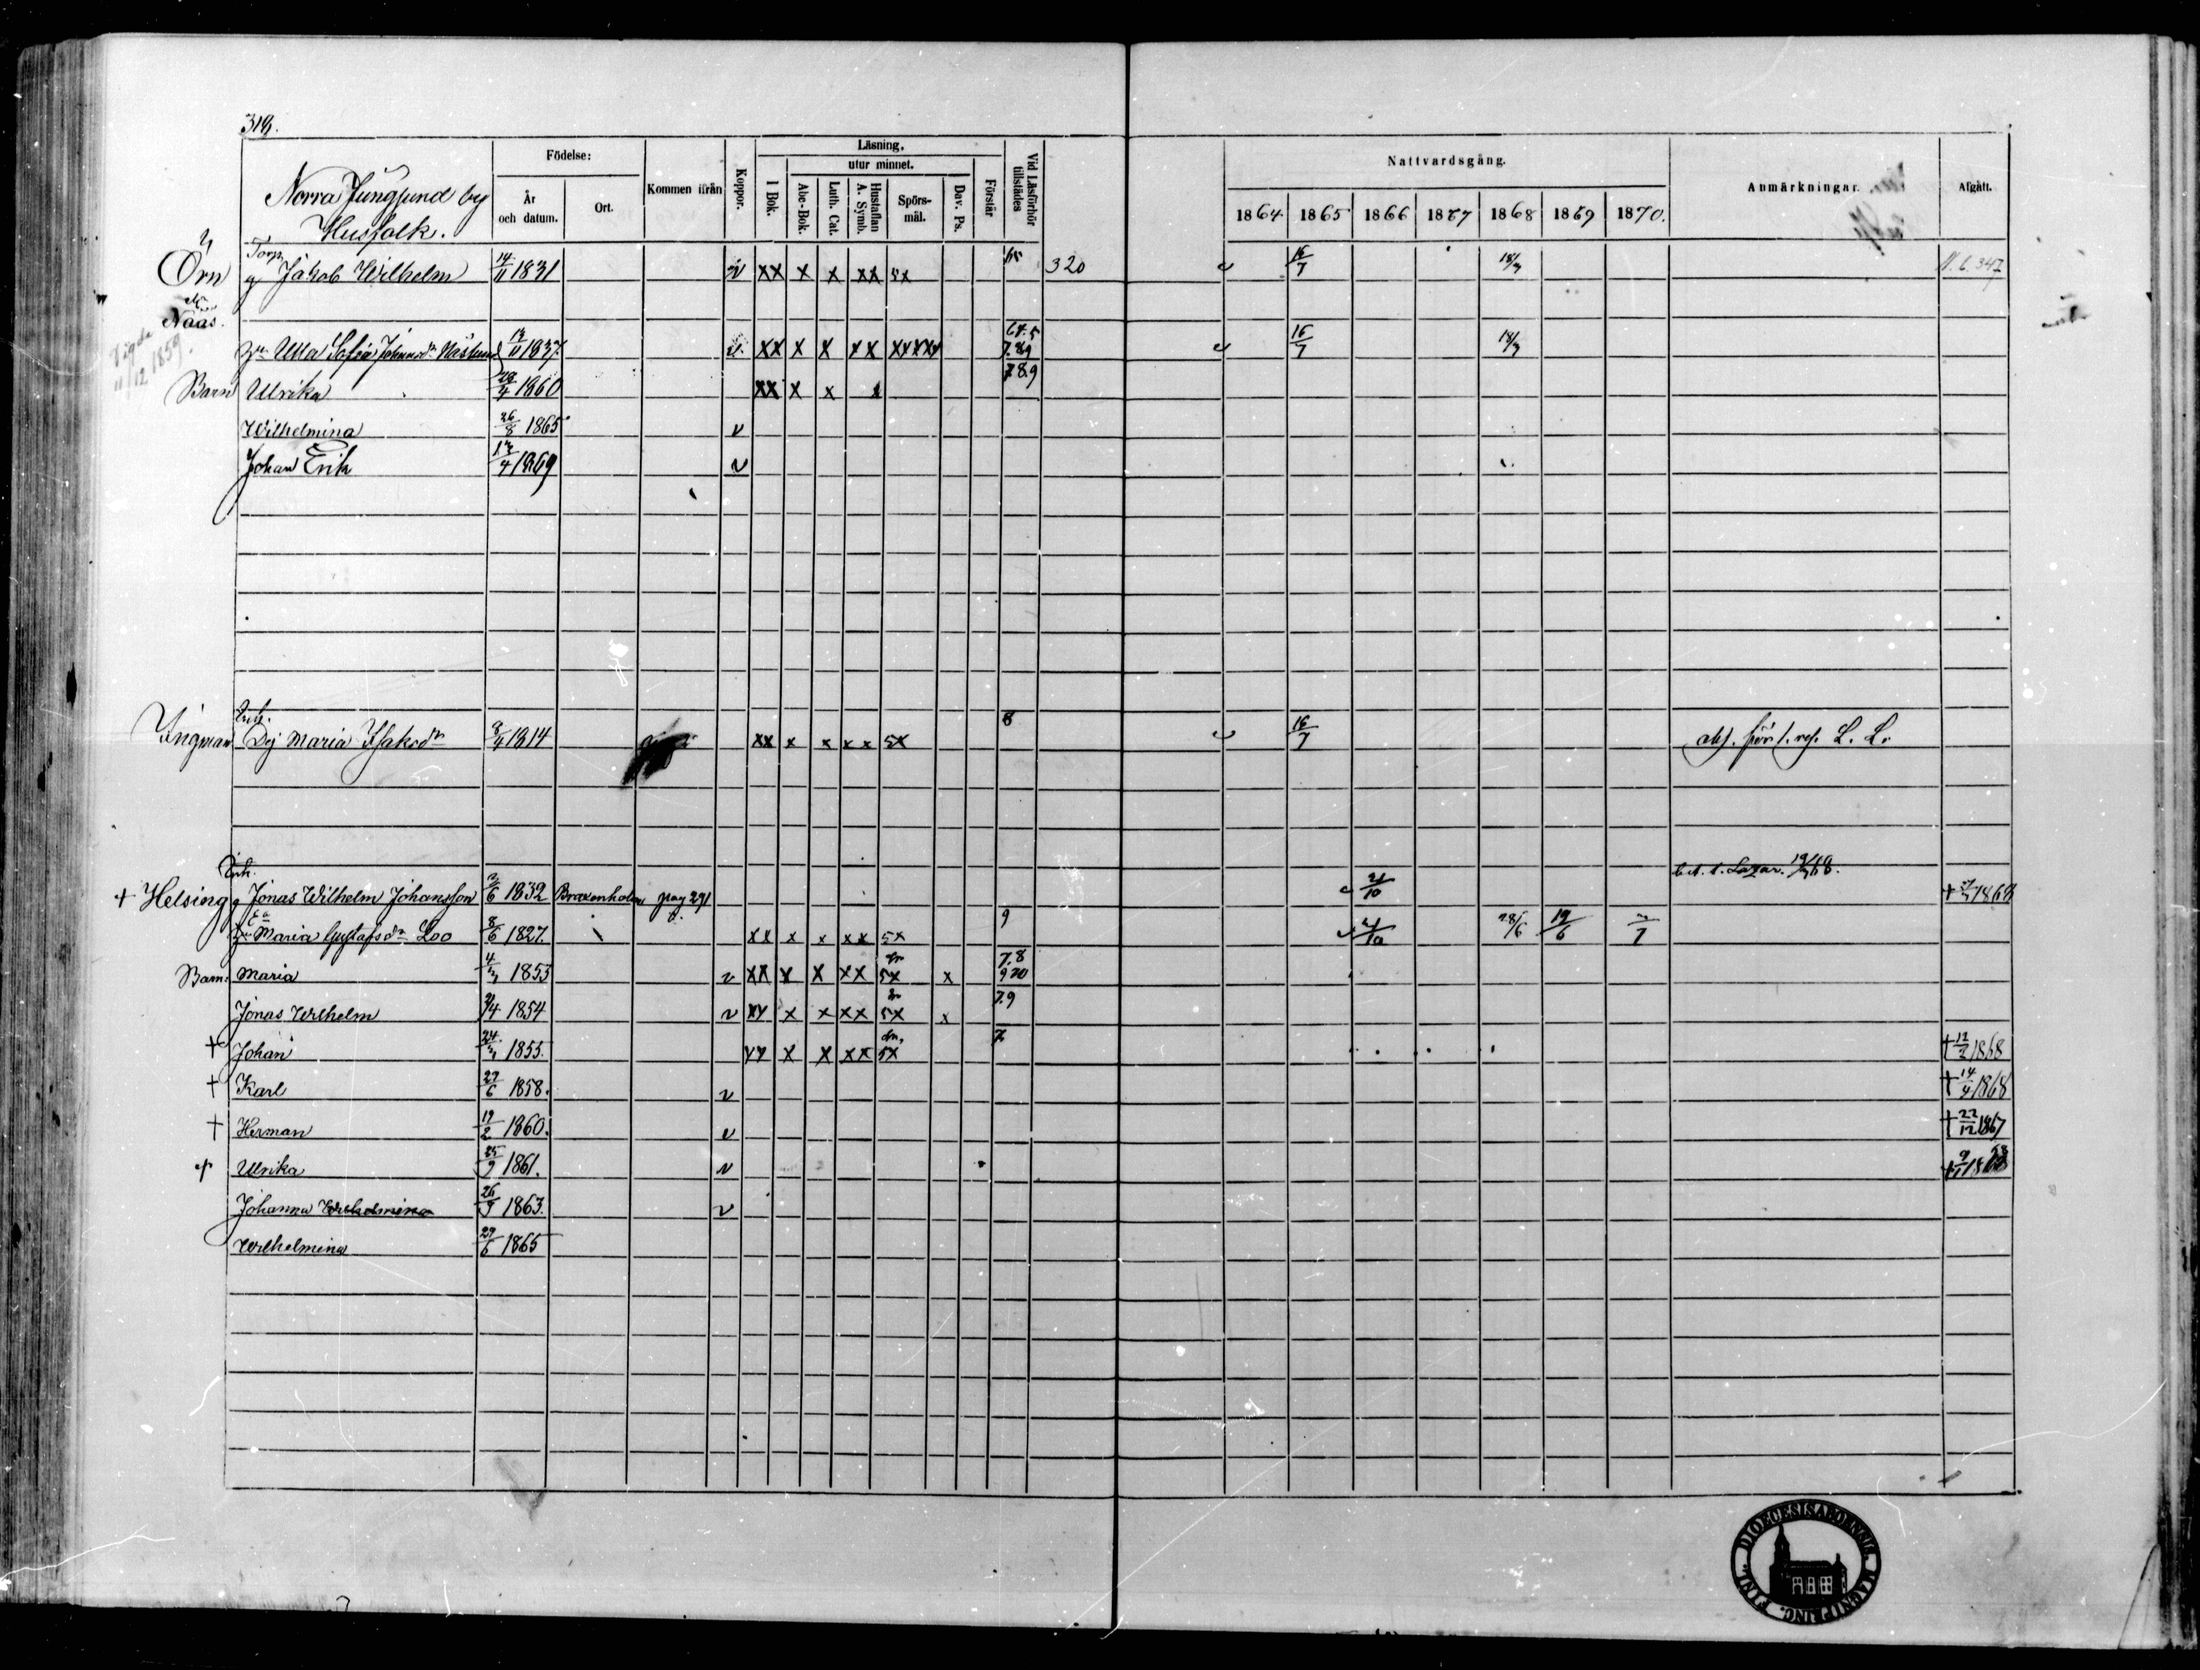 318.
Norra Jungsund by
Husfolk.
Födelse:
År
och datum.
Ort.
Kommen ifrån
Koppor.
Läsning,
I Bok.
utur minnet.
Abc-Bok.
Luth. Cat.
Hustaflan
A. Symb.
Spörs-
mål.
Dav. Ps.
Förstår
Vid Läsförhör
tillstädes
Nattvardsgång.
1864
1865
1866
1867
1868
1869
1870.
Anmärkningar.
Afgått.
Torp.
Örn Jakob Wilhelm 14/11 1831 v xx x x xx 5x 320 16/7 18/3
Näås.
Vigde
11/12 1859.
Ulla Sofia Johansdr Näslund 1837. v xx x x xx xxxxx 16/7 18/3
7.89
Barn Ulrika 1860 xx x x x 789
Wilhelmina 26/8 1865 v
Johan Erik 1869 v
Ingman Dej Maria Isaksdr 1814 xx x x x x 5x 8 16/7 L. L.
+ Helsing Jonas Wilhelm Johansson 1832 Braxenholm pag 291 21/10 + 1868
Maria Gustafsdr Loo 8/6 1827. xx x x xx 5x 9 21/10 28/6 19/6
Barn: Maria 1853 v xx x x xx 5x x 7.8
920
Jonas Wilhelm 1854 v xx x x xx 5x x 7.9
+ Johan 1855. xx x x xx 5x 7 + 12/2 1868
+ Karl 27/6 1858. v + 14/4 1868
+ Herman 19/2 1860. v + 22/12 1867
+ Ulrika 25/9 1861. v
Johanna Wilhelmina 1863. v
Wilhelmina 27/6 1865
DIOECESIS ABOENSIS MAGNIPRINC. FINL.